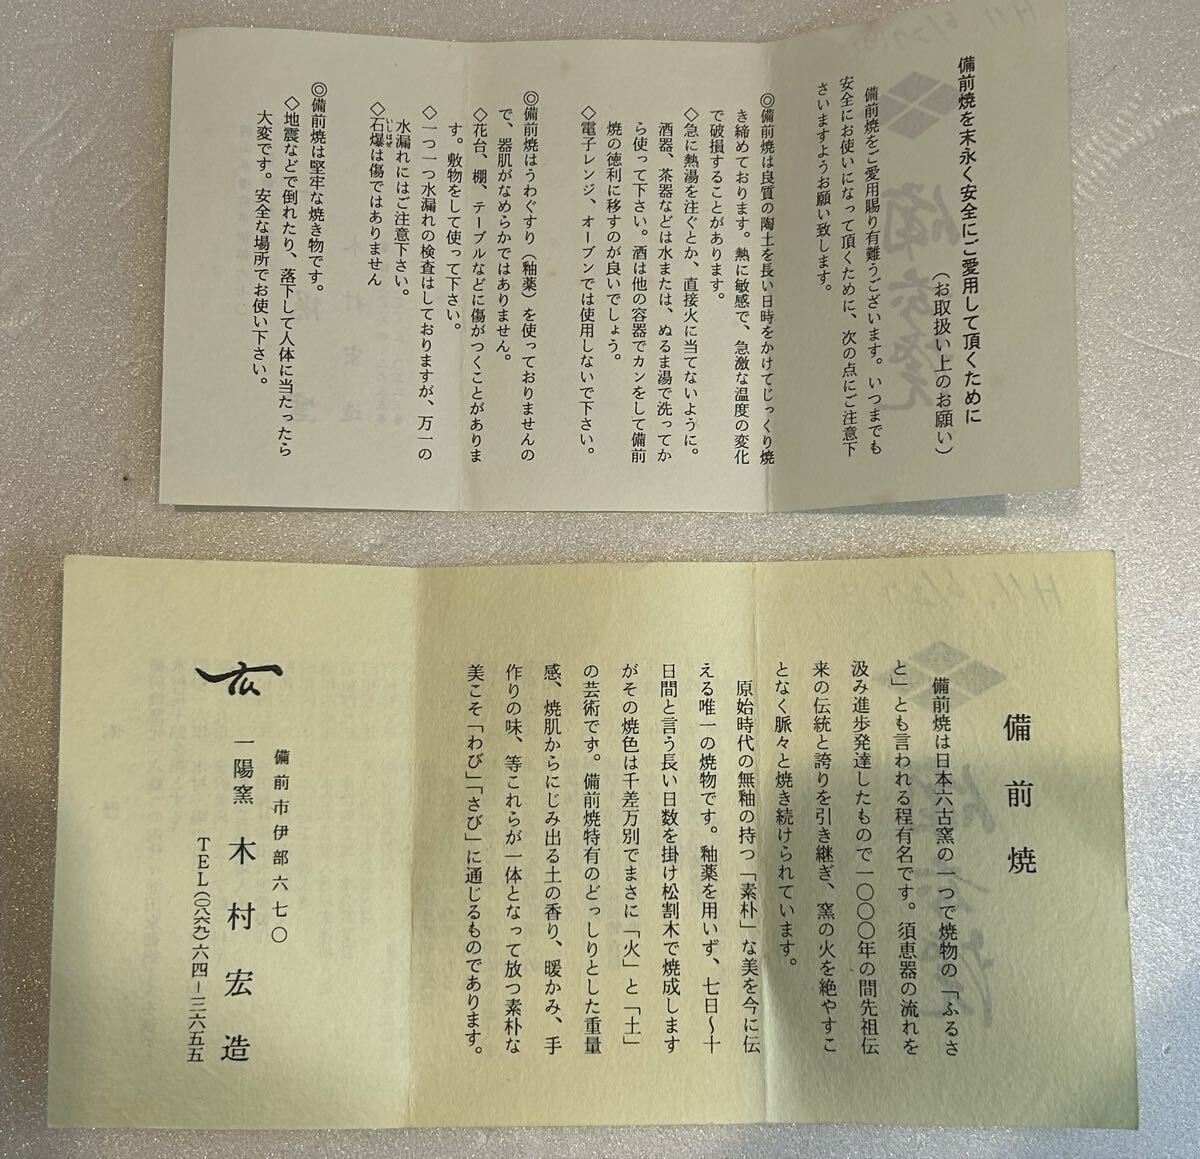 備前焼を末永く安全にご愛用して頂くために
(お取扱い上のお願い)
備前焼をご愛用賜り有難うございます。いつまでも
安全にお使いになって頂くために、次の点にご注意下
さいますようお願い致します。
◎備前焼は良質の陶土を長い日時をかけてじっくり焼
き締めております。熱に敏感で、急激な温度の変化
で破損することがあります。
◇急に熱湯を注ぐとか、直接火に当てないように。
酒器、茶器などは水または、ぬるま湯で洗ってか
ら使って下さい。酒は他の容器でカンをして備前
焼の徳利に移すのが良いでしょう。
◇電子レンジ、オーブンでは使用しないで下さい。
◎備前焼はうわぐすり(釉薬)を使っておりませんの
で、器肌がなめらかではありません。
◇花台、棚、テーブルなどに傷がつくことがありま
す。敷物をして使って下さい。
◇一つ一つ水漏れの検査はしておりますが、万一の
水漏れにはご注意下さい。
◇石爆は傷ではありません
いしはぜ
◎備前焼は堅牢な焼き物です。
◇地震などで倒れたり、落下して人体に当たったら
大変です。安全な場所でお使い下さい。
備前焼
備前焼は日本六古窯の一つで焼物の「ふるさ
と」とも言われる程有名です。須恵器の流れを
汲み進歩発達したもので一〇〇〇年の間先祖伝
来の伝統と誇りを引き継ぎ、窯の火を絶やすこ
となく脈々と焼き続けられています。
原始時代の無釉の持つ「素朴」な美を今に伝
える唯一の焼物です。釉薬を用いず、七日〜十
日間と言う長い日数を掛け松割木で焼成します
がその焼色は千差万別でまさに「火」と「土」
の芸術です。備前焼特有のどっしりとした重量
感、焼肌からにじみ出る土の香り、暖かみ、手
作りの味、等これらが一体となって放つ素朴な
美こそ「わび」「さび」に通じるものであります。
備前市伊部六七〇
一陽窯 木村宏造
TEL(〇八六九)六四-三六五五